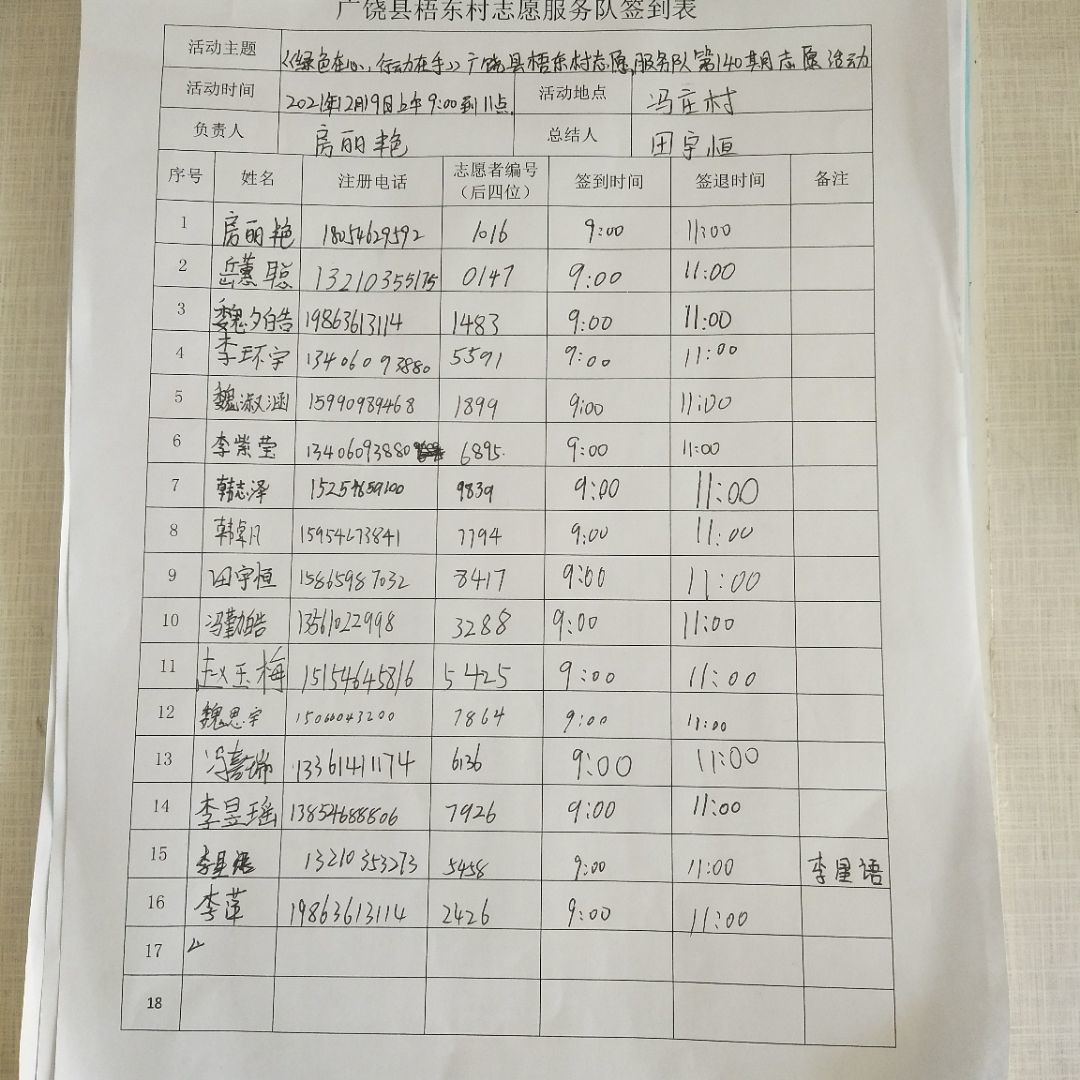 广饶县梧东村志愿服务队签到表
活动主题 《绿色在心,行动在手》广饶县梧东村志愿服务队第140期志愿活动
活动时间 2021年12月19日上午9:00到11点 活动地点 冯庄村
负责人 房丽艳 总结人 田宇恒
序号 姓名 注册电话 志愿者编号(后四位) 签到时间 签退时间 备注
1 房丽艳 18054629592 1016 9:00 11:00
2 岳蕙聪 13210355175 0147 9:00 11:00
3 魏夕皓 19863613114 1483 9:00 11:00
4 李环宇 13406093880 5591 9:00 11:00
5 魏淑涵 15990989468 1899 9:00 11:00
6 李紫莹 13406093880 6895. 9:00 11:00
7 韩志泽 15254659100 9839 9:00 11:00
8 15954673841 7794 9:00 11:00
9 田宇恒 15865987032 8417 9:00 11:00
10 冯勤皓 13561022998 3288 9:00 11:00
11 赵玉梅 15154645816 5425 9:00 11:00
12 魏思宇 15066043200 7864 9:00 11:00
13 13361411174 6136 9:00 11:00
14 李昱瑶 13854688806 7926 9:00 11:00
15 李星语 13210353273 5458 9:00 11:00 李星语
16 李莲 19863613114 2426 9:00 11:00
17
18